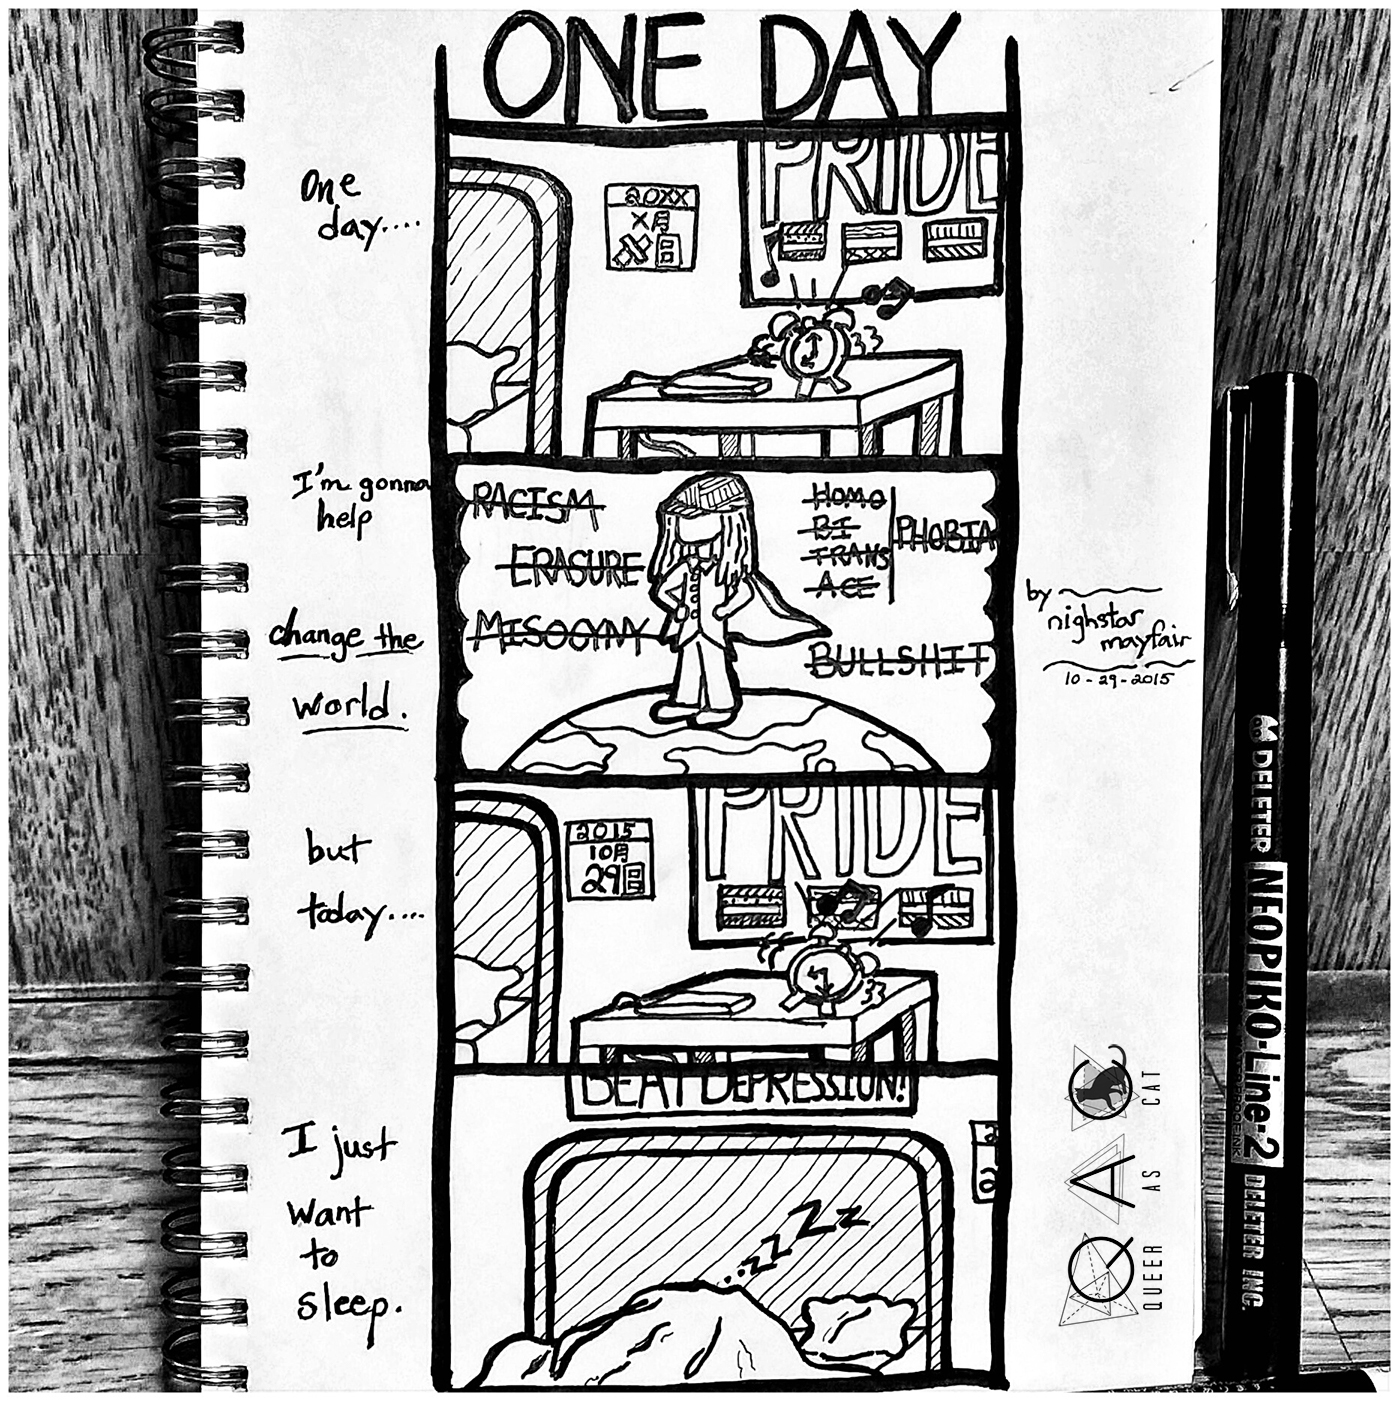 ONE DAY
One
day....
20XX
X月
XX日
PRIDE
I'm gonna
help
change the
world.
RACISM
ERASURE
MISOGYNY
HOMO
BI
TRANS
ACE
PHOBIA
BULLSHIT
by
nighstar
mayfair
10-29-2015
but
today....
2015
10月
29日
PRIDE
I just
want
to
sleep.
BEAT DEPRESSION!
2
2
..zzZZz
QAC
QUEER AS CAT
DELETER NEOPIKO-Line-2 DELETER INC.